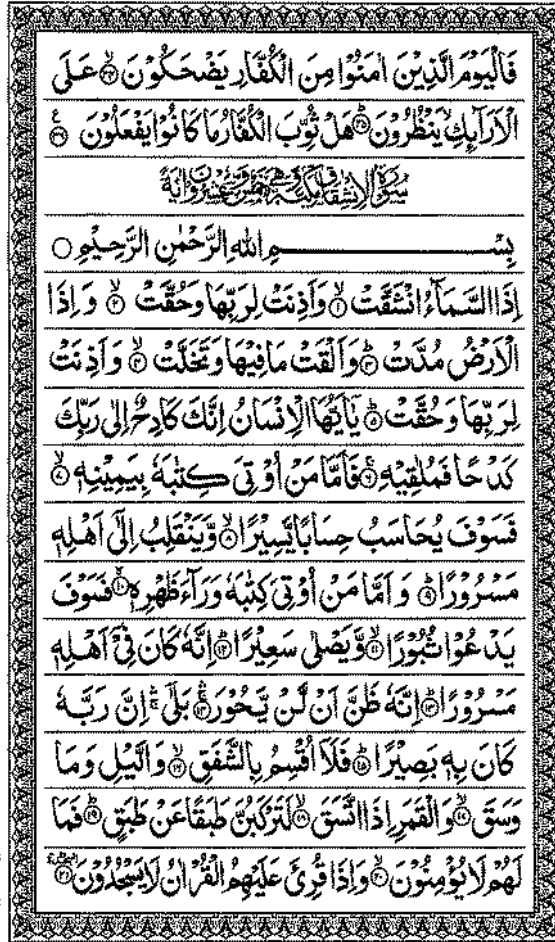 فَالْيَوْمَ الَّذِيْنَ اٰمَنُوْا مِنَ الْكُفَّارِ يَضْحَكُوْنَ ۙ‏﴿۳۴﴾ عَلَى
الْاَرَآئِكِ يَنْظُرُوْنَ ؕ‏﴿۳۵﴾ هَلْ ثُوِّبَ الْكُفَّارُ مَا كَانُوْا يَفْعَلُوْنَ ﴿۳۶﴾
سُوْرَةُ الْاِنْشِقَاقِ مَكِّيَّةٌ وَّهِيَ خَمْسٌ وَّعِشْرُوْنَ اٰيَةً
بِسْمِ اللهِ الرَّحْمٰنِ الرَّحِيْمِ ○
اِذَا السَّمَآءُ انْشَقَّتْ ۙ﴿۱﴾ وَاَذِنَتْ لِرَبِّهَا وَحُقَّتْ ۙ﴿۲﴾ وَاِذَا
الْاَرْضُ مُدَّتْ ؕ﴿۳﴾ وَاَلْقَتْ مَا فِيْهَا وَتَخَلَّتْ ۙ﴿۴﴾ وَاَذِنَتْ
لِرَبِّهَا وَحُقَّتْ ؕ﴿۵﴾ يٰۤاَيُّهَا الْاِنْسَانُ اِنَّكَ كَادِحٌ اِلٰى رَبِّكَ
كَدْحًا فَمُلٰقِيْهِ ۚ﴿۶﴾ فَاَمَّا مَنْ اُوْتِيَ كِتٰبَهٗ بِيَمِيْنِهٖ ۙ﴿۷﴾
فَسَوْفَ يُحَاسَبُ حِسَابًا يَّسِيْرًا ۙ﴿۸﴾ وَّيَنْقَلِبُ اِلٰٓى اَهْلِهٖ
مَسْرُوْرًا ؕ﴿۹﴾ وَاَمَّا مَنْ اُوْتِيَ كِتٰبَهٗ وَرَآءَ ظَهْرِهٖ ۙ﴿۱۰﴾ فَسَوْفَ
يَدْعُوْا ثُبُوْرًا ۙ﴿۱۱﴾ وَّيَصْلٰى سَعِيْرًا ؕ﴿۱۲﴾ اِنَّهٗ كَانَ فِيْٓ اَهْلِهٖ
مَسْرُوْرًا ؕ﴿۱۳﴾ اِنَّهٗ ظَنَّ اَنْ لَّنْ يَّحُوْرَ ۚ﴿۱۴﴾ بَلٰٓى ۚ اِنَّ رَبَّهٗ
كَانَ بِهٖ بَصِيْرًا ؕ﴿۱۵﴾ فَلَآ اُقْسِمُ بِالشَّفَقِ ۙ﴿۱۶﴾ وَالَّيْلِ وَمَا
وَسَقَ ۙ﴿۱۷﴾ وَالْقَمَرِ اِذَا اتَّسَقَ ۙ﴿۱۸﴾ لَتَرْكَبُنَّ طَبَقًا عَنْ طَبَقٍ ؕ﴿۱۹﴾ فَمَا
لَهُمْ لَا يُؤْمِنُوْنَ ۙ﴿۲۰﴾ وَاِذَا قُرِئَ عَلَيْهِمُ الْقُرْاٰنُ لَا يَسْجُدُوْنَ ؕ﴿۲۱﴾